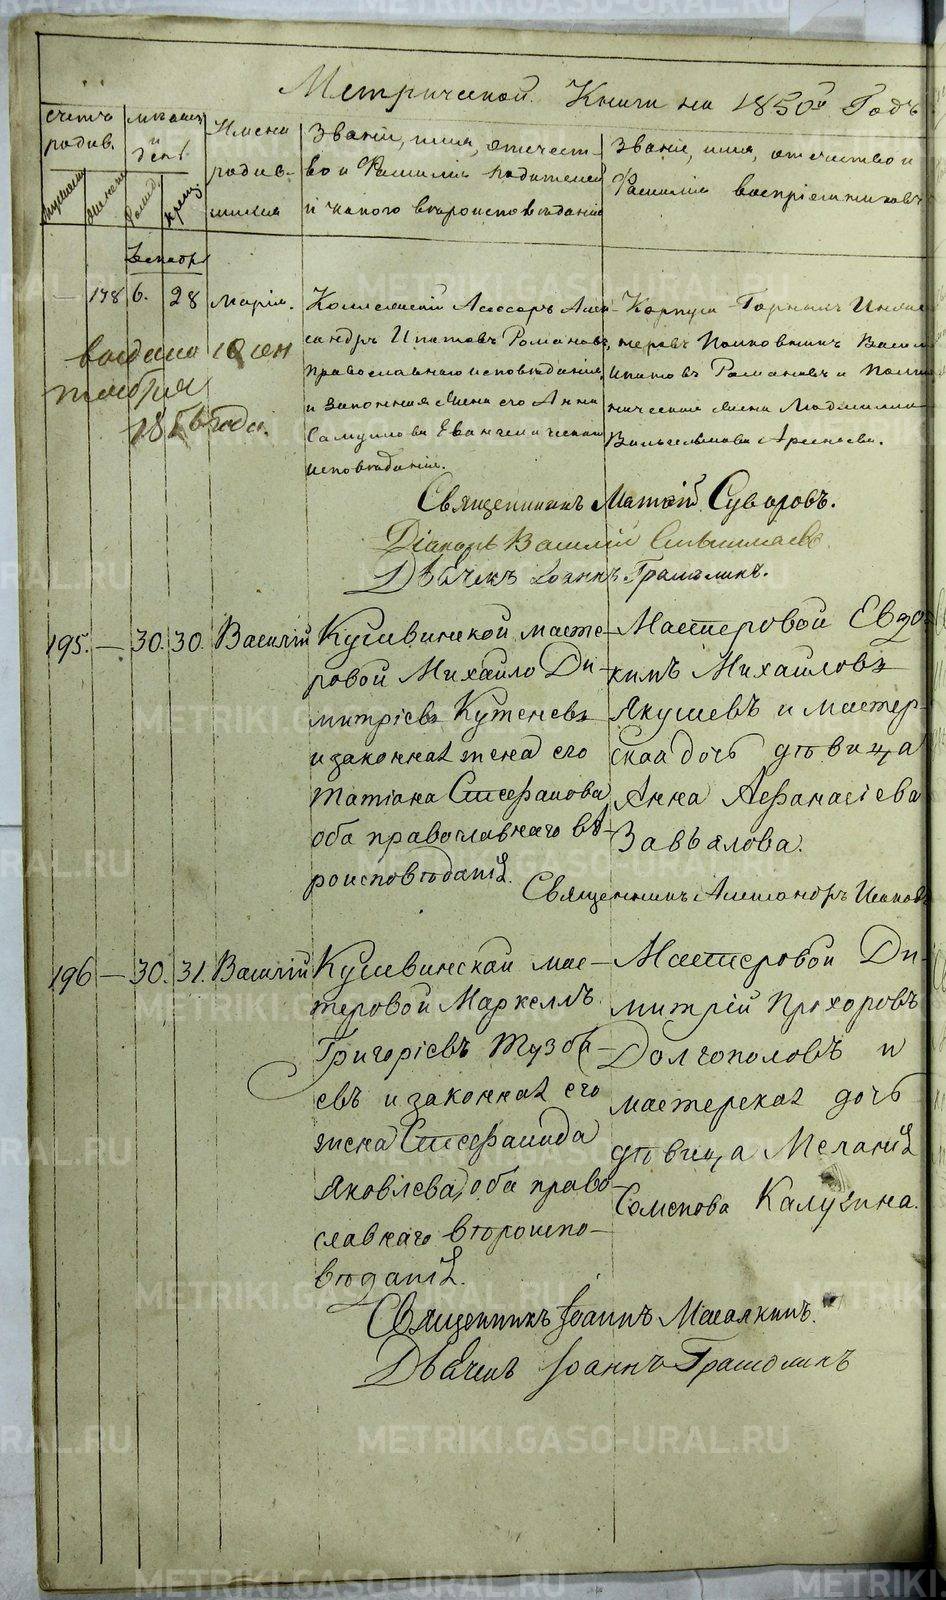 Метрической Книги на 1850й Годъ
счетъ родив.
мѣсяцъ и день.
Имена родив-
шихся
Званіе, имя, отечест-
во и Фамилія родителей
и какого вѣроисповѣданія
Званіе, имя, отечество и
Фамилія воспріемниковъ
Декабрь
— 178 6. 28 Марія.
Коллежскій Ассесоръ Алек-
сандръ Ипатовъ Романовъ,
православнаго исповѣданія,
и законная жена его Анна
Самуилова Евангелическаго
исповѣданія.
Корпуса Горныхъ Инже-
неровъ Полковникъ Васил
Ипатовъ Романовъ и
жена Людмилла
Вильгельмова
выдано 10 сен
тября
186 года.
Священникъ Матѳій Суворовъ.
Діаконъ Василій
Дьячекъ Іоаннъ Грамолинъ.
195. — 30. 30. Василій
Кушвинской масте-
ровой Михайло Ди-
митріевъ Кутеневъ
и законная жена его
Татіана Стефанова
оба православнаго вѣ-
роисповѣданія.
Мастеровой Евдо-
кимъ Михайловъ
Якушевъ и мастер-
ская дочь дѣвица
Анна Аѳанасіева
Завьялова.
Священникъ Александръ
196 — 30. 31. Василій
Кушвинскай мас-
теровой Маркеллъ
Григоріевъ Тузов-
евъ и законная его
жена Стефанида
Яковлева, оба право-
славнаго вѣроиспо-
вѣданія.
Мастеровой Ди-
митрій Прохоровъ
Долгополовъ и
мастерская дочь
дѣвица Меланія
Семенова Калугина.
Священникъ Іоаннъ Масалкинъ.
Дьячекъ Іоаннъ Грамолинъ
METRIKI.GASO-URAL.RU